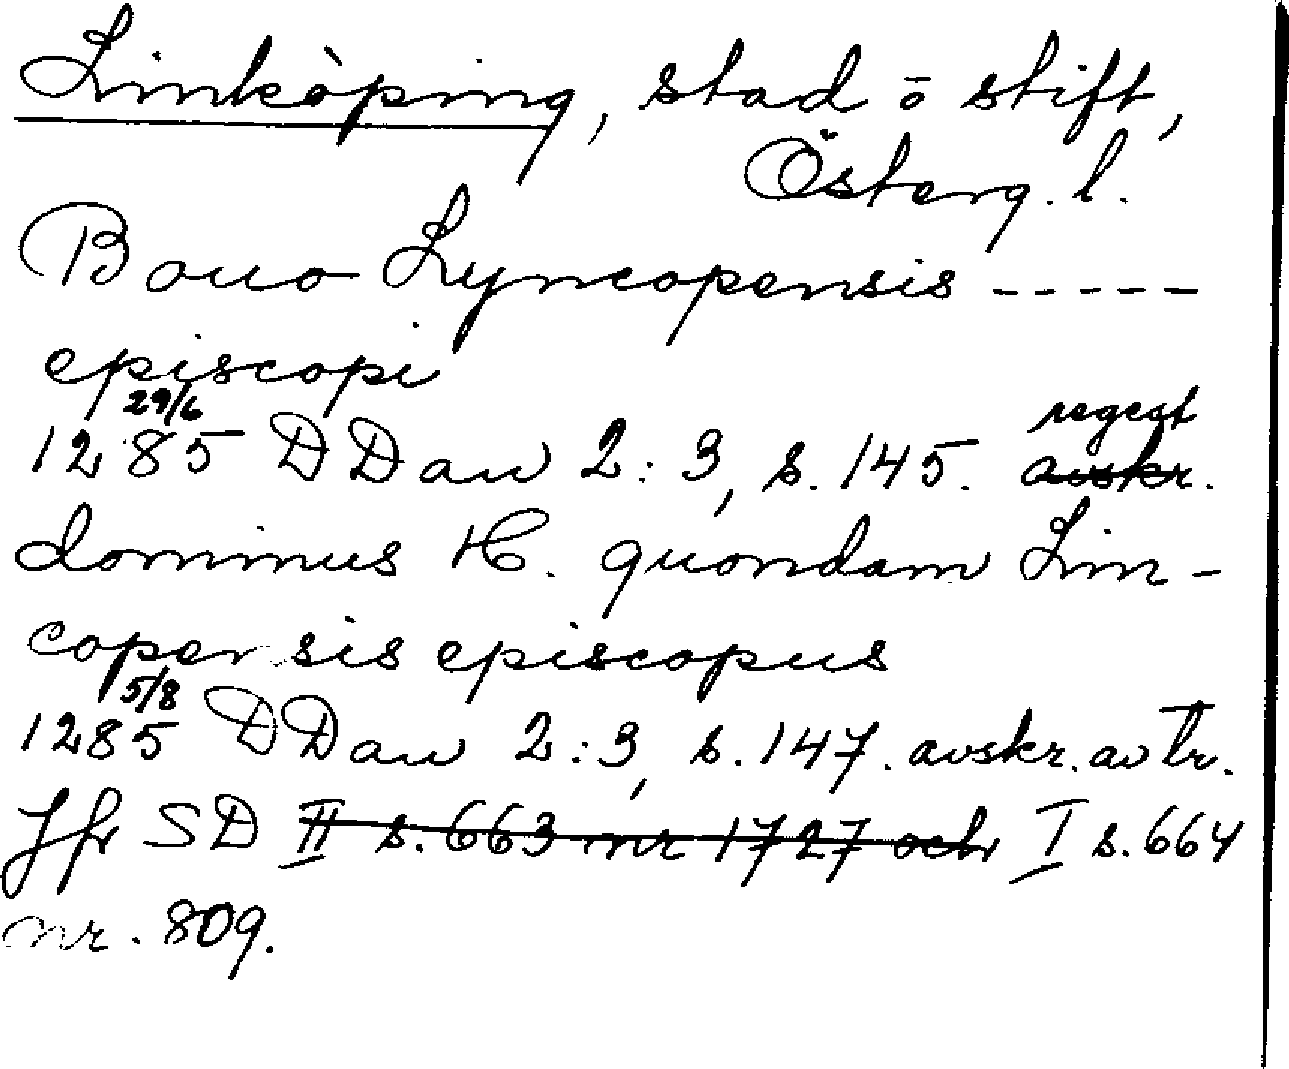 Linköping, stad o stift,
Österg. l.
Bouo Lyncopensis -----
episcopi
29/6
1285 DDan 2:3, s. 145. regest avskr.
dominus H. quondam Lin-
copensis episcopus
5/8
1285 DDan 2:3, s. 147. avskr. av tr.
Jfr SD II s. 663 nr 1727 och I s. 664
nr. 809.